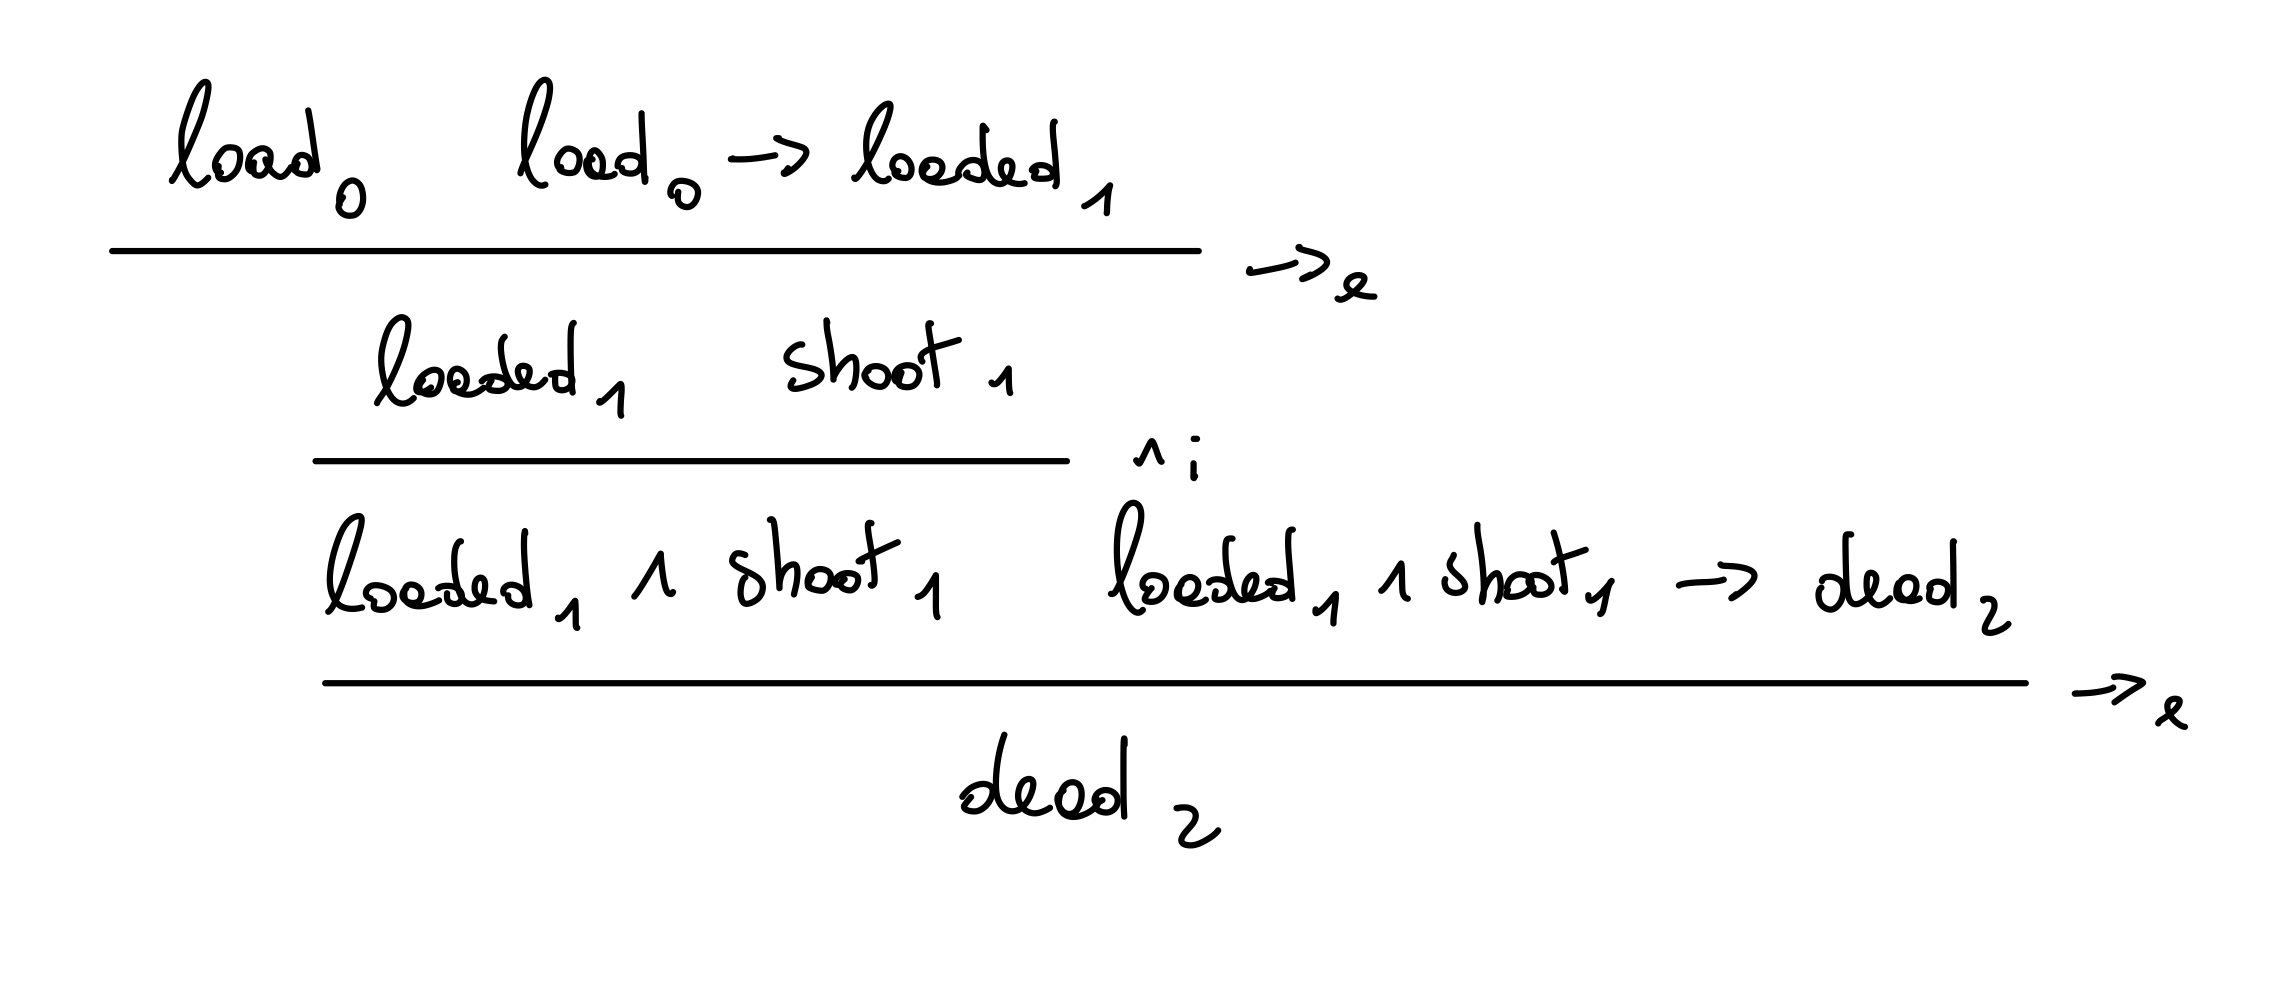 load₀ load₀ → loaded₁
→e
loaded₁ shoot₁
∧i
loaded₁ ∧ shoot₁ loaded₁ ∧ shoot₁ → dead₂
→e
dead₂